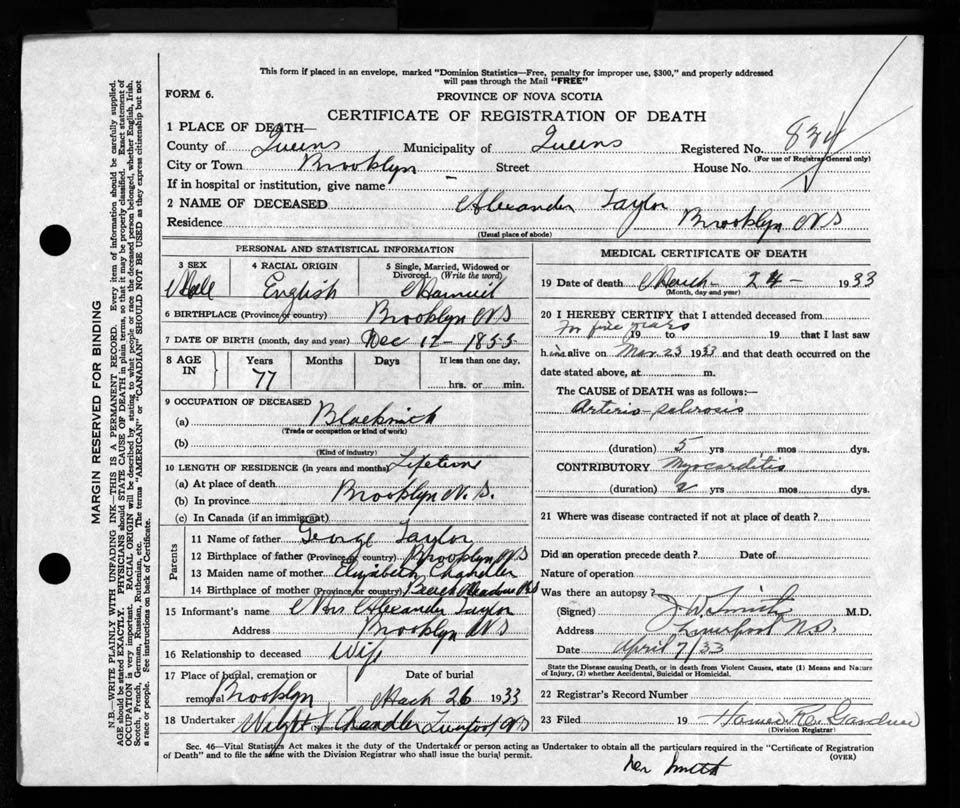 This form if placed in an envelope, marked "Dominion Statistics—Free, penalty for improper use, $300," and properly addressed
will pass through the Mail "FREE"
FORM 6.
PROVINCE OF NOVA SCOTIA
CERTIFICATE OF REGISTRATION OF DEATH
1 PLACE OF DEATH—
County of Queens Municipality of Queens Registered No. 834
(For use of Registrar General only)
City or Town Brooklyn Street House No.
If in hospital or institution, give name —
2 NAME OF DECEASED Alexander Taylor
Residence Brooklyn N S
(Usual place of abode)
PERSONAL AND STATISTICAL INFORMATION
3 SEX 4 RACIAL ORIGIN 5 Single, Married, Widowed or
Divorced. (Write the word)
Male English
6 BIRTHPLACE (Province or country) Brooklyn N S
7 DATE OF BIRTH (month, day and year) Dec 17 - 1855
8 AGE IN Years Months Days If less than one day,
77 hrs. or min.
9 OCCUPATION OF DECEASED
(a)
(Trade or occupation or kind of work)
(b)
(Kind of industry)
10 LENGTH OF RESIDENCE (in years and months) Lifetime
(a) At place of death
(b) In province Brooklyn N. S.
(c) In Canada (if an immigrant)
Parents
11 Name of father George Taylor
12 Birthplace of father (Province or country) Brooklyn N S
13 Maiden name of mother Elizabeth Chandler
14 Birthplace of mother (Province or country) Beech Meadows N S
15 Informant's name Mrs Alexander Taylor
Address Brooklyn N S
16 Relationship to deceased Wife
17 Place of burial, cremation or
removal Brooklyn
Date of burial
26 1933
18 Undertaker Chandler N S
MEDICAL CERTIFICATE OF DEATH
19 Date of death March - 24 - 1933
(Month, day and year)
20 I HEREBY CERTIFY that I attended deceased from
for five years 19 to 19 that I last saw
him alive on Mar 23 1933 and that death occurred on the
date stated above, at m.
The CAUSE of DEATH was as follows:—
Arterio-sclerosis
(duration) 5 yrs mos dys.
CONTRIBUTORY Myocarditis
(duration) 2 yrs mos dys.
21 Where was disease contracted if not at place of death?
Did an operation precede death? Date of
Nature of operation
Was there an autopsy?
(Signed) J W Smith M.D.
Address Liverpool N.S.
Date April 7/33
State the Disease causing Death, or in death from Violent Causes, state (1) Means and Nature
of Injury, (2) whether Accidental, Suicidal or Homicidal.
22 Registrar's Record Number
23 Filed 19 Gardner
(Division Registrar)
Sec. 46—Vital Statistics Act makes it the duty of the Undertaker or person acting as Undertaker to obtain all the particulars required in the "Certificate of Registration
of Death" and to file the same with the Division Registrar who shall issue the burial permit. (OVER)
Smith
MARGIN RESERVED FOR BINDING
N.B.—WRITE PLAINLY WITH UNFADING INK—THIS IS A PERMANENT RECORD. Every item of information should be carefully supplied.
AGE should be stated EXACTLY. PHYSICIANS should STATE CAUSE OF DEATH in plain terms, so that it may be properly classified. Exact statement of
OCCUPATION is very important. RACIAL ORIGIN will be described by stating to what people or race the deceased person belonged, whether English, Irish,
Scotch, French, German, Russian, Ruthenian, etc. The terms "AMERICAN" or "CANADIAN" SHOULD NOT BE USED as they express citizenship but not
a race or people. See instructions on back of Certificate.